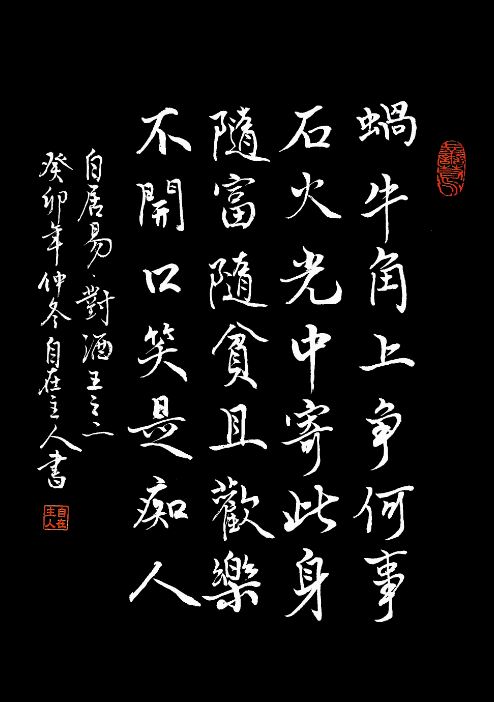 蝸牛角上争何事
石火光中寄此身
隨富隨貧且歡樂
不開口笑是痴人
白居易·對酒五之二
癸卯年仲冬自在主人書
自在
主人